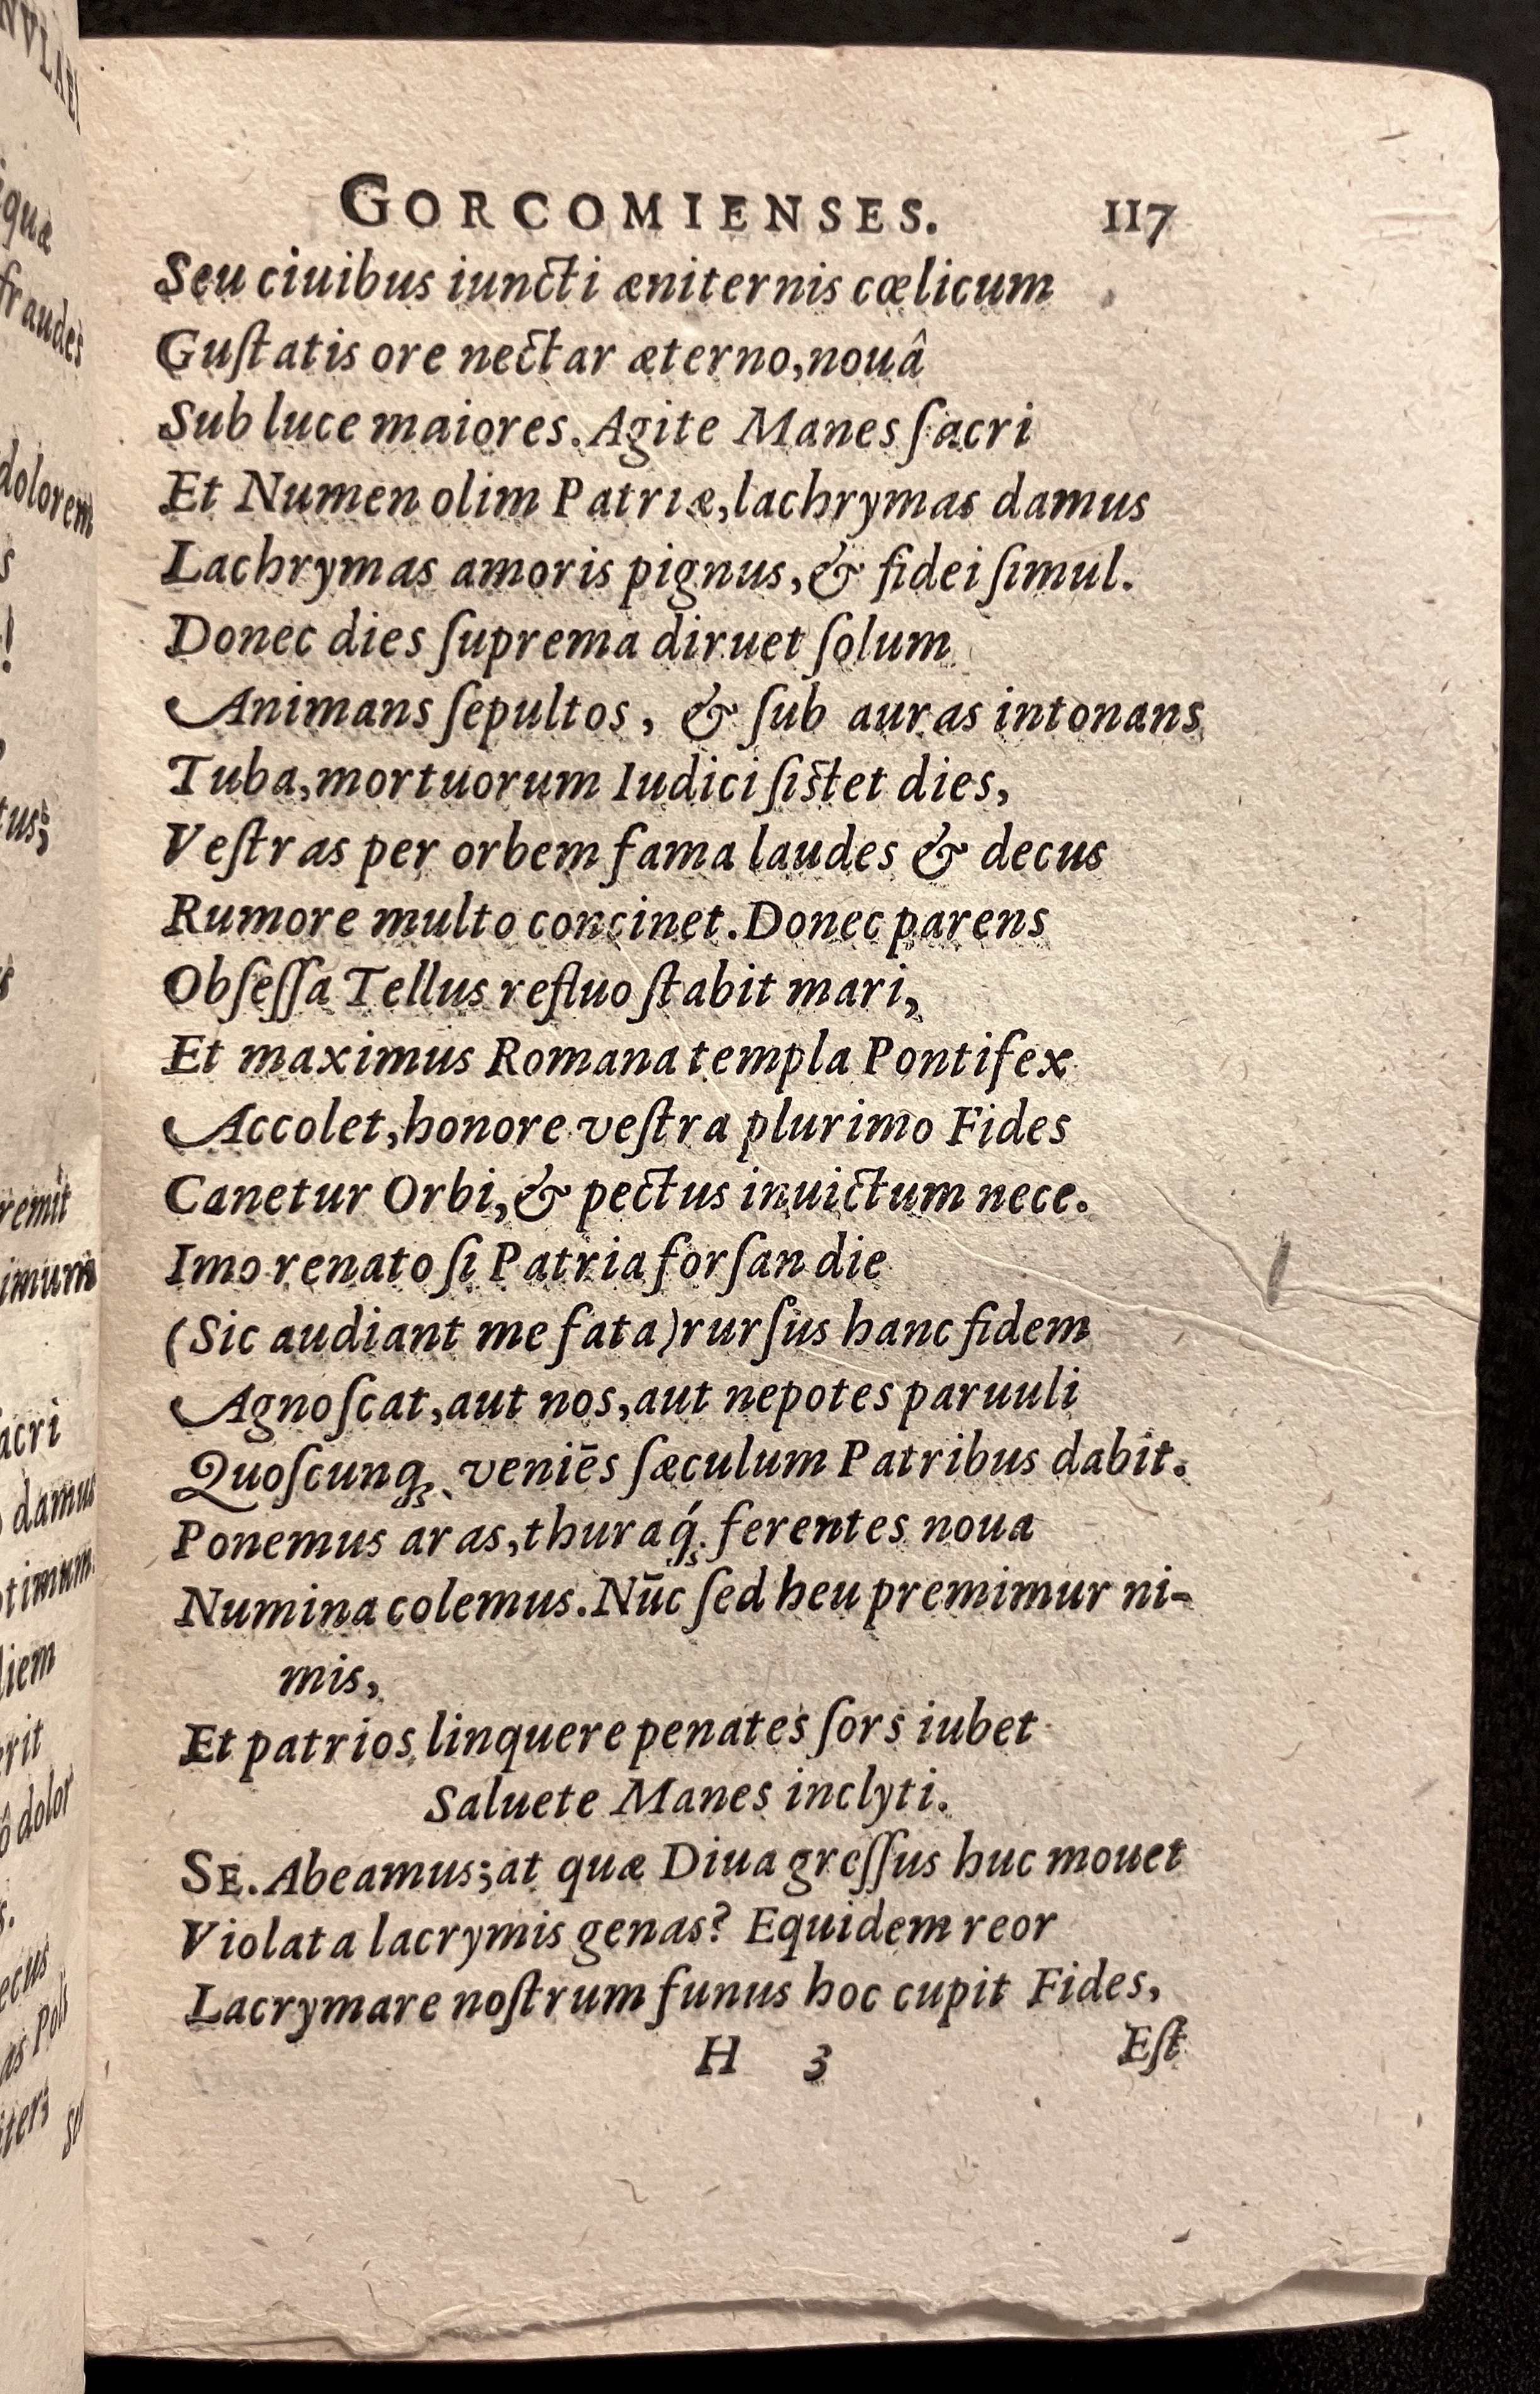 NVLAE
GORCOMIENSES. 117
Seu ciuibus iuncti æniternis cœlicum
Guſtatis ore nectar æterno,nouâ
Sub luce maiores. Agite Manes ſacri
Et Numen olim Patriæ,lachrymas damus
Lachrymas amoris pignus,& fidei ſimul.
Donec dies ſuprema diruet ſolum
Animans ſepultos, & ſub auras intonans
Tuba,mortuorum Iudici ſiſtet dies,
Veſtras per orbem fama laudes & decus
Rumore multo concinet. Donec parens
Obſeſſa Tellus refluo ſtabit mari,
Et maximus Romana templa Pontifex
Accolet,honore veſtra plurimo Fides
Canetur Orbi,& pectus inuictum nece.
Imo renato ſi Patria forſan die
(Sic audiant me fata)rurſus hanc fidem
Agnoſcat,aut nos,aut nepotes paruuli
Quoſcunq; veniēs ſæculum Patribus dabit.
Ponemus aras,thuraq́; ferentes noua
Numina colemus. Nūc ſed heu premimur ni-
mis,
Et patrios linquere penates ſors iubet
Saluete Manes inclyti.
SE. Abeamus;at quæ Diua greſſus huc mouet
Violata lacrymis genas? Equidem reor
Lacrymare noſtrum funus hoc cupit Fides,
H 3 Eſt